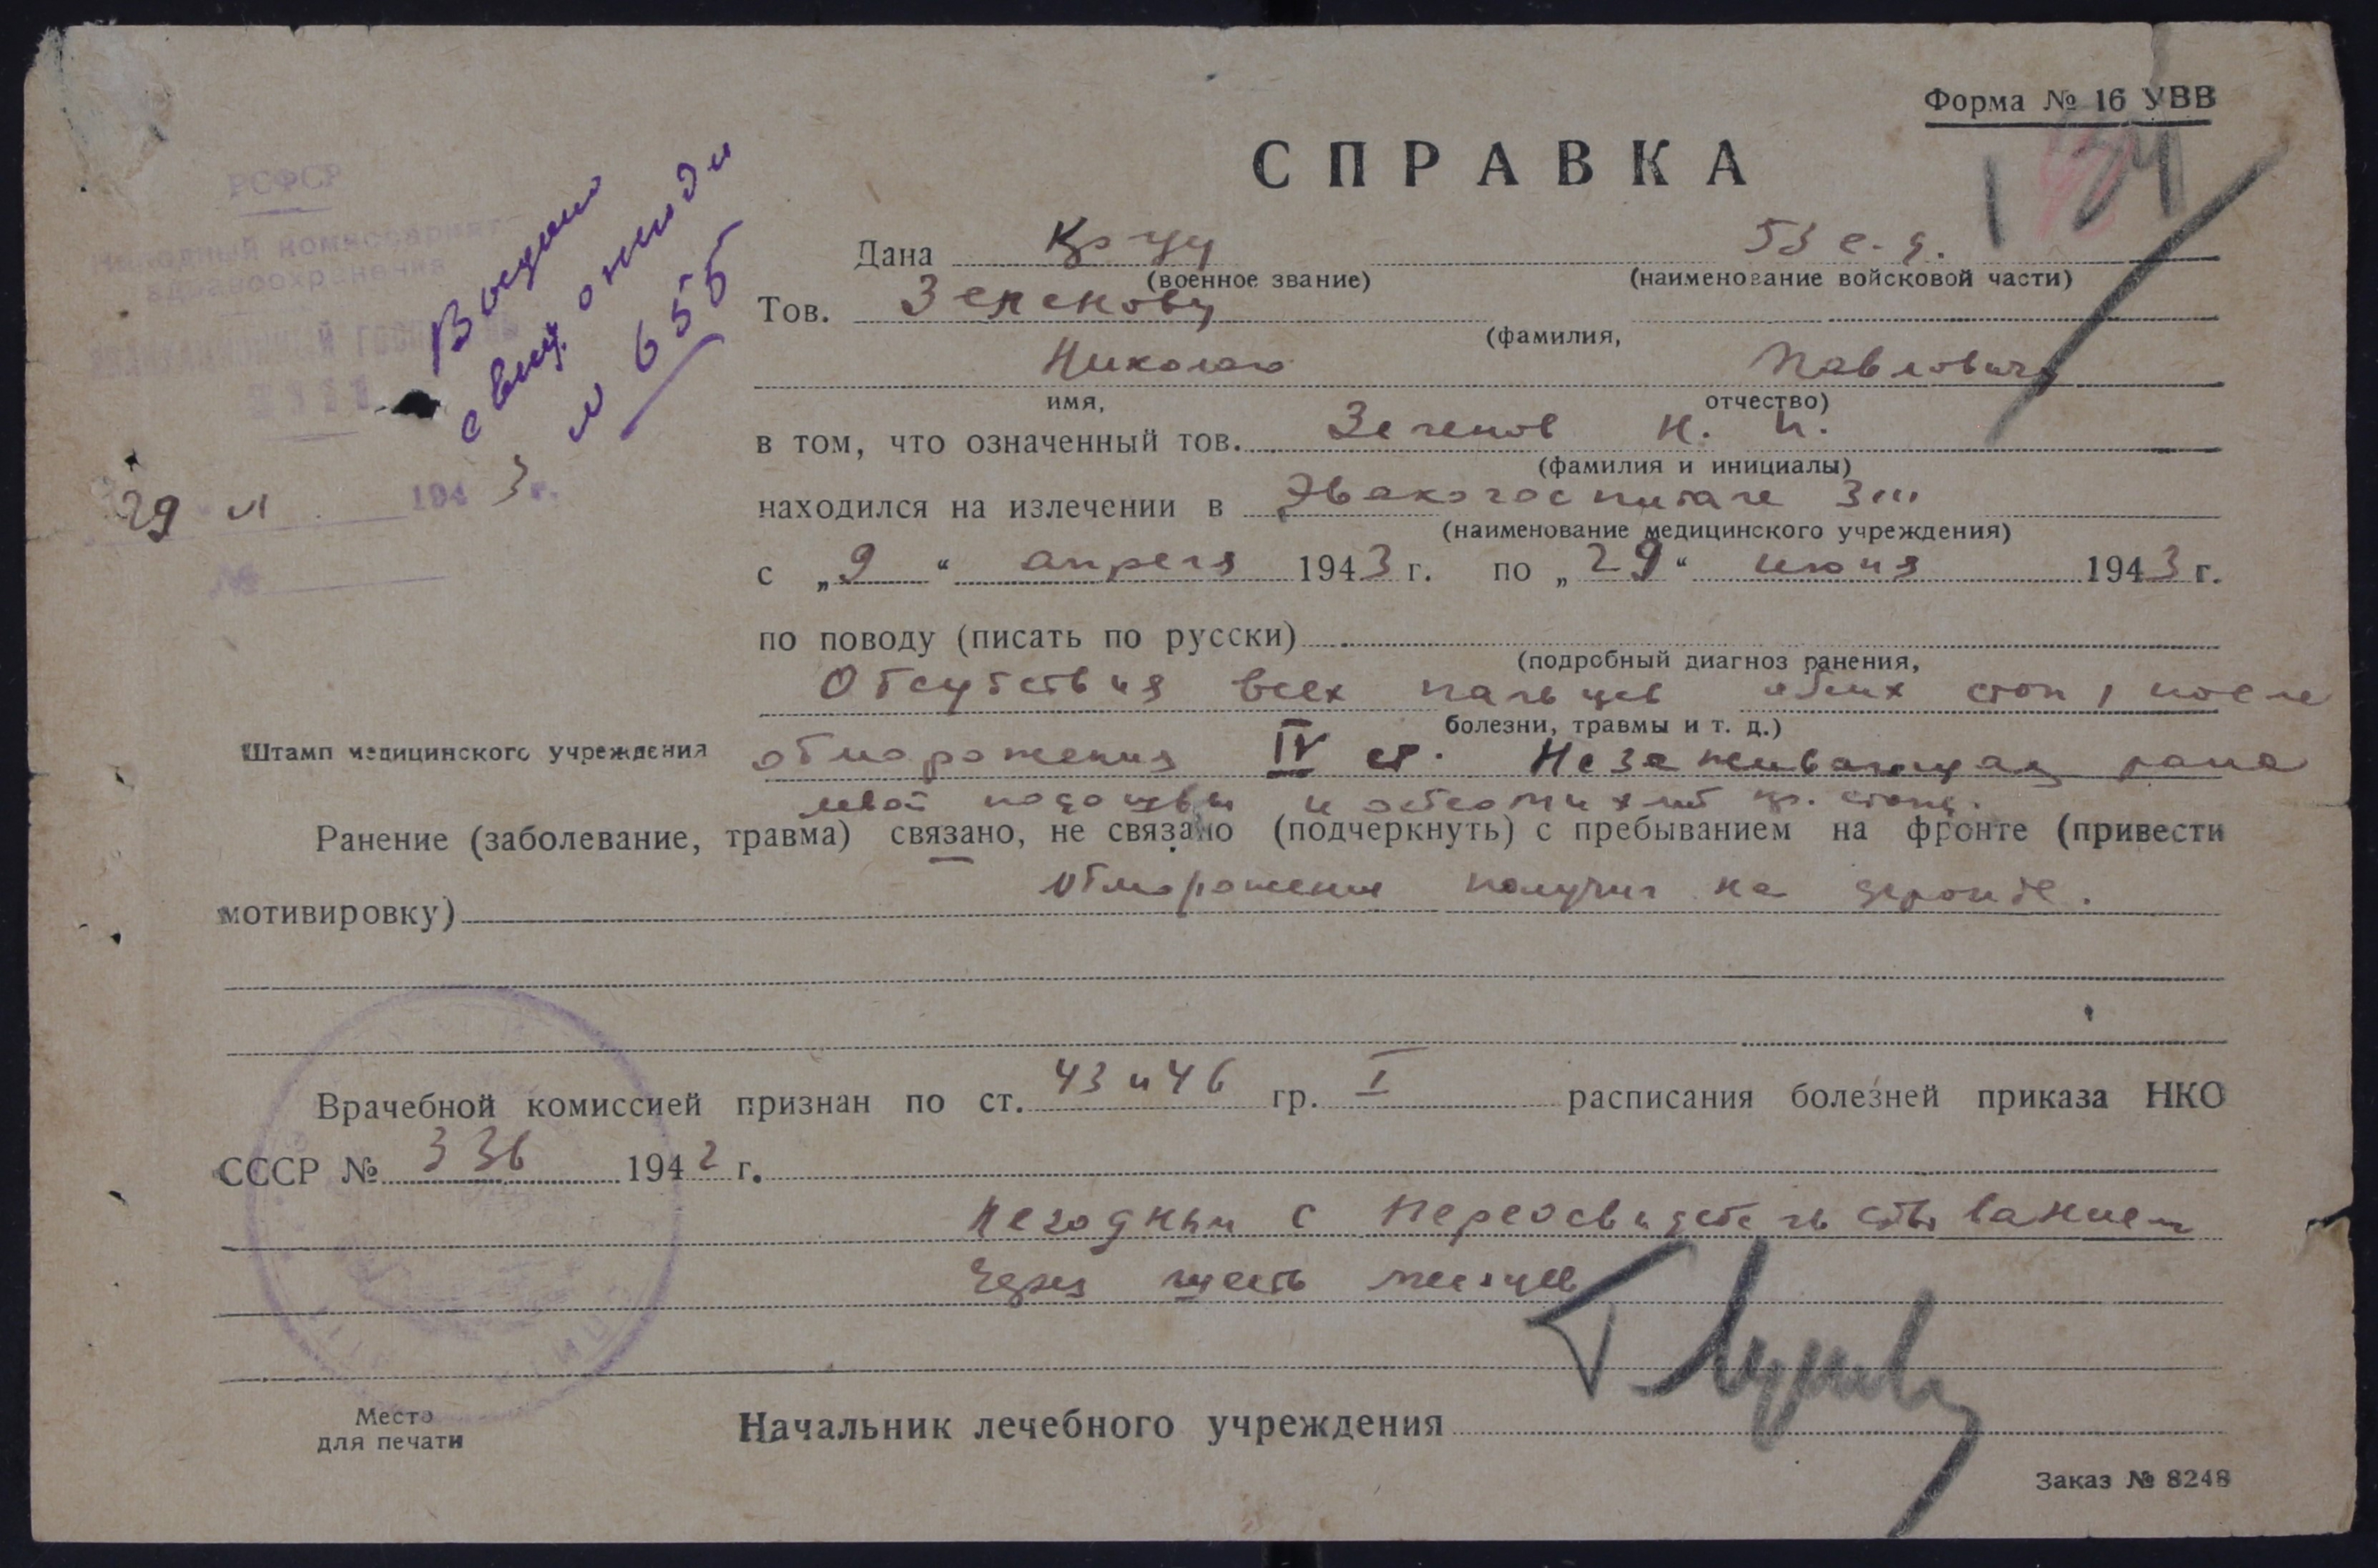 Форма № 16 УВВ
СПРАВКА
РСФСР
Народный комиссариат
здравоохранения
Выдано
свид. о инв-ди
№ 655
29 VI 1943 г.
№
Штамп медицинского учреждения
Дана Кр-цу 53 с.д.
(военное звание) (наименование войсковой части)
Тов. Зеленову
(фамилия,
Николаю Павловичу
имя, отчество)
в том, что означенный тов. Зеленов Н. П.
(фамилия и инициалы)
находился на излечении в Эвакогоспитале 3111
(наименование медицинского учреждения)
с „9“ апреля 1943 г. по „29“ июня 1943 г.
по поводу (писать по русски)
(подробный диагноз ранения,
Отсутствия всех пальцев обеих стоп, после
болезни, травмы и т. д.)
обморожения IV ст. Незаживающая рана
левой подошвы и остеомиелит пр. стопы.
Ранение (заболевание, травма) связано, не связано (подчеркнуть) с пребыванием на фронте (привести
мотивировку) Обморожение получил на фронте.
Врачебной комиссией признан по ст. 43 и 46 гр. I расписания болезней приказа НКО
СССР № 336 1942 г.
негодным с переосвидетельствованием
через шесть месяцев
Место
для печати
Начальник лечебного учреждения
Заказ № 8248